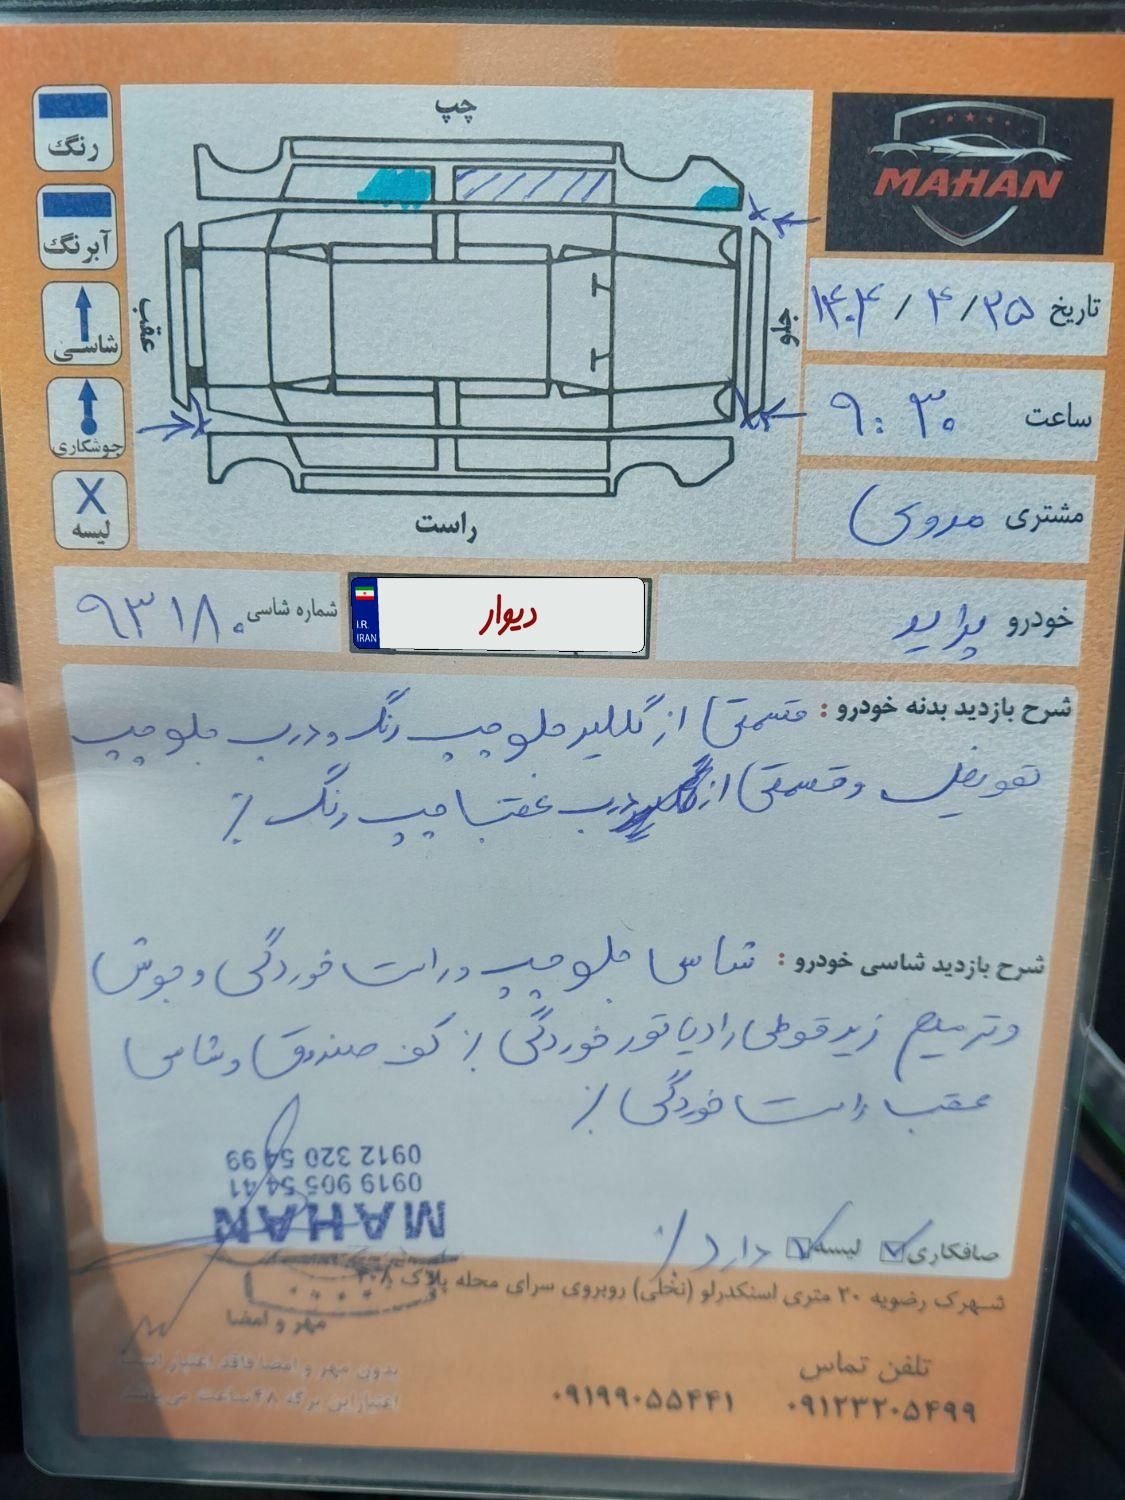 رنگ
آبرنگ
شاسی
جوشکاری
X
لیسه
چپ
عقب
جلو
راست
MAHAN
تاریخ ۱۴۰۴/۴/۲۵
ساعت ۹:۳۰
مشتری
خودرو پراید
I.R.
IRAN
دیوار
شماره شاسی ۹۳۱۸۰
شرح بازدید بدنه خودرو : قسمتی از گلگیر جلو چپ رنگ و درب جلو چپ
تعویض و قسمتی از درب عقب چپ رنگ
شرح بازدید شاسی خودرو : شاسی جلو چپ و راست خوردگی و جوش
و ترمیم زیر قوطی رادیاتور خوردگی / کف صندوق و شاسی
عقب راست خوردگی /
0912 320 54 99
0919 905 54 41
MAHAN
صافکاری ☑ لیسه ☑ دارد
شهرک رضویه ۲۰ متری اسکندرلو (نخلی) روبروی سرای محله پلاک ۲۰۸
مهر و امضا
بدون مهر و امضا فاقد اعتبار است
اعتبار این برگه ۴۸ ساعت می باشد
تلفن تماس
۰۹۱۲۳۲۰۵۴۹۹
۰۹۱۹۹۰۵۵۴۴۱